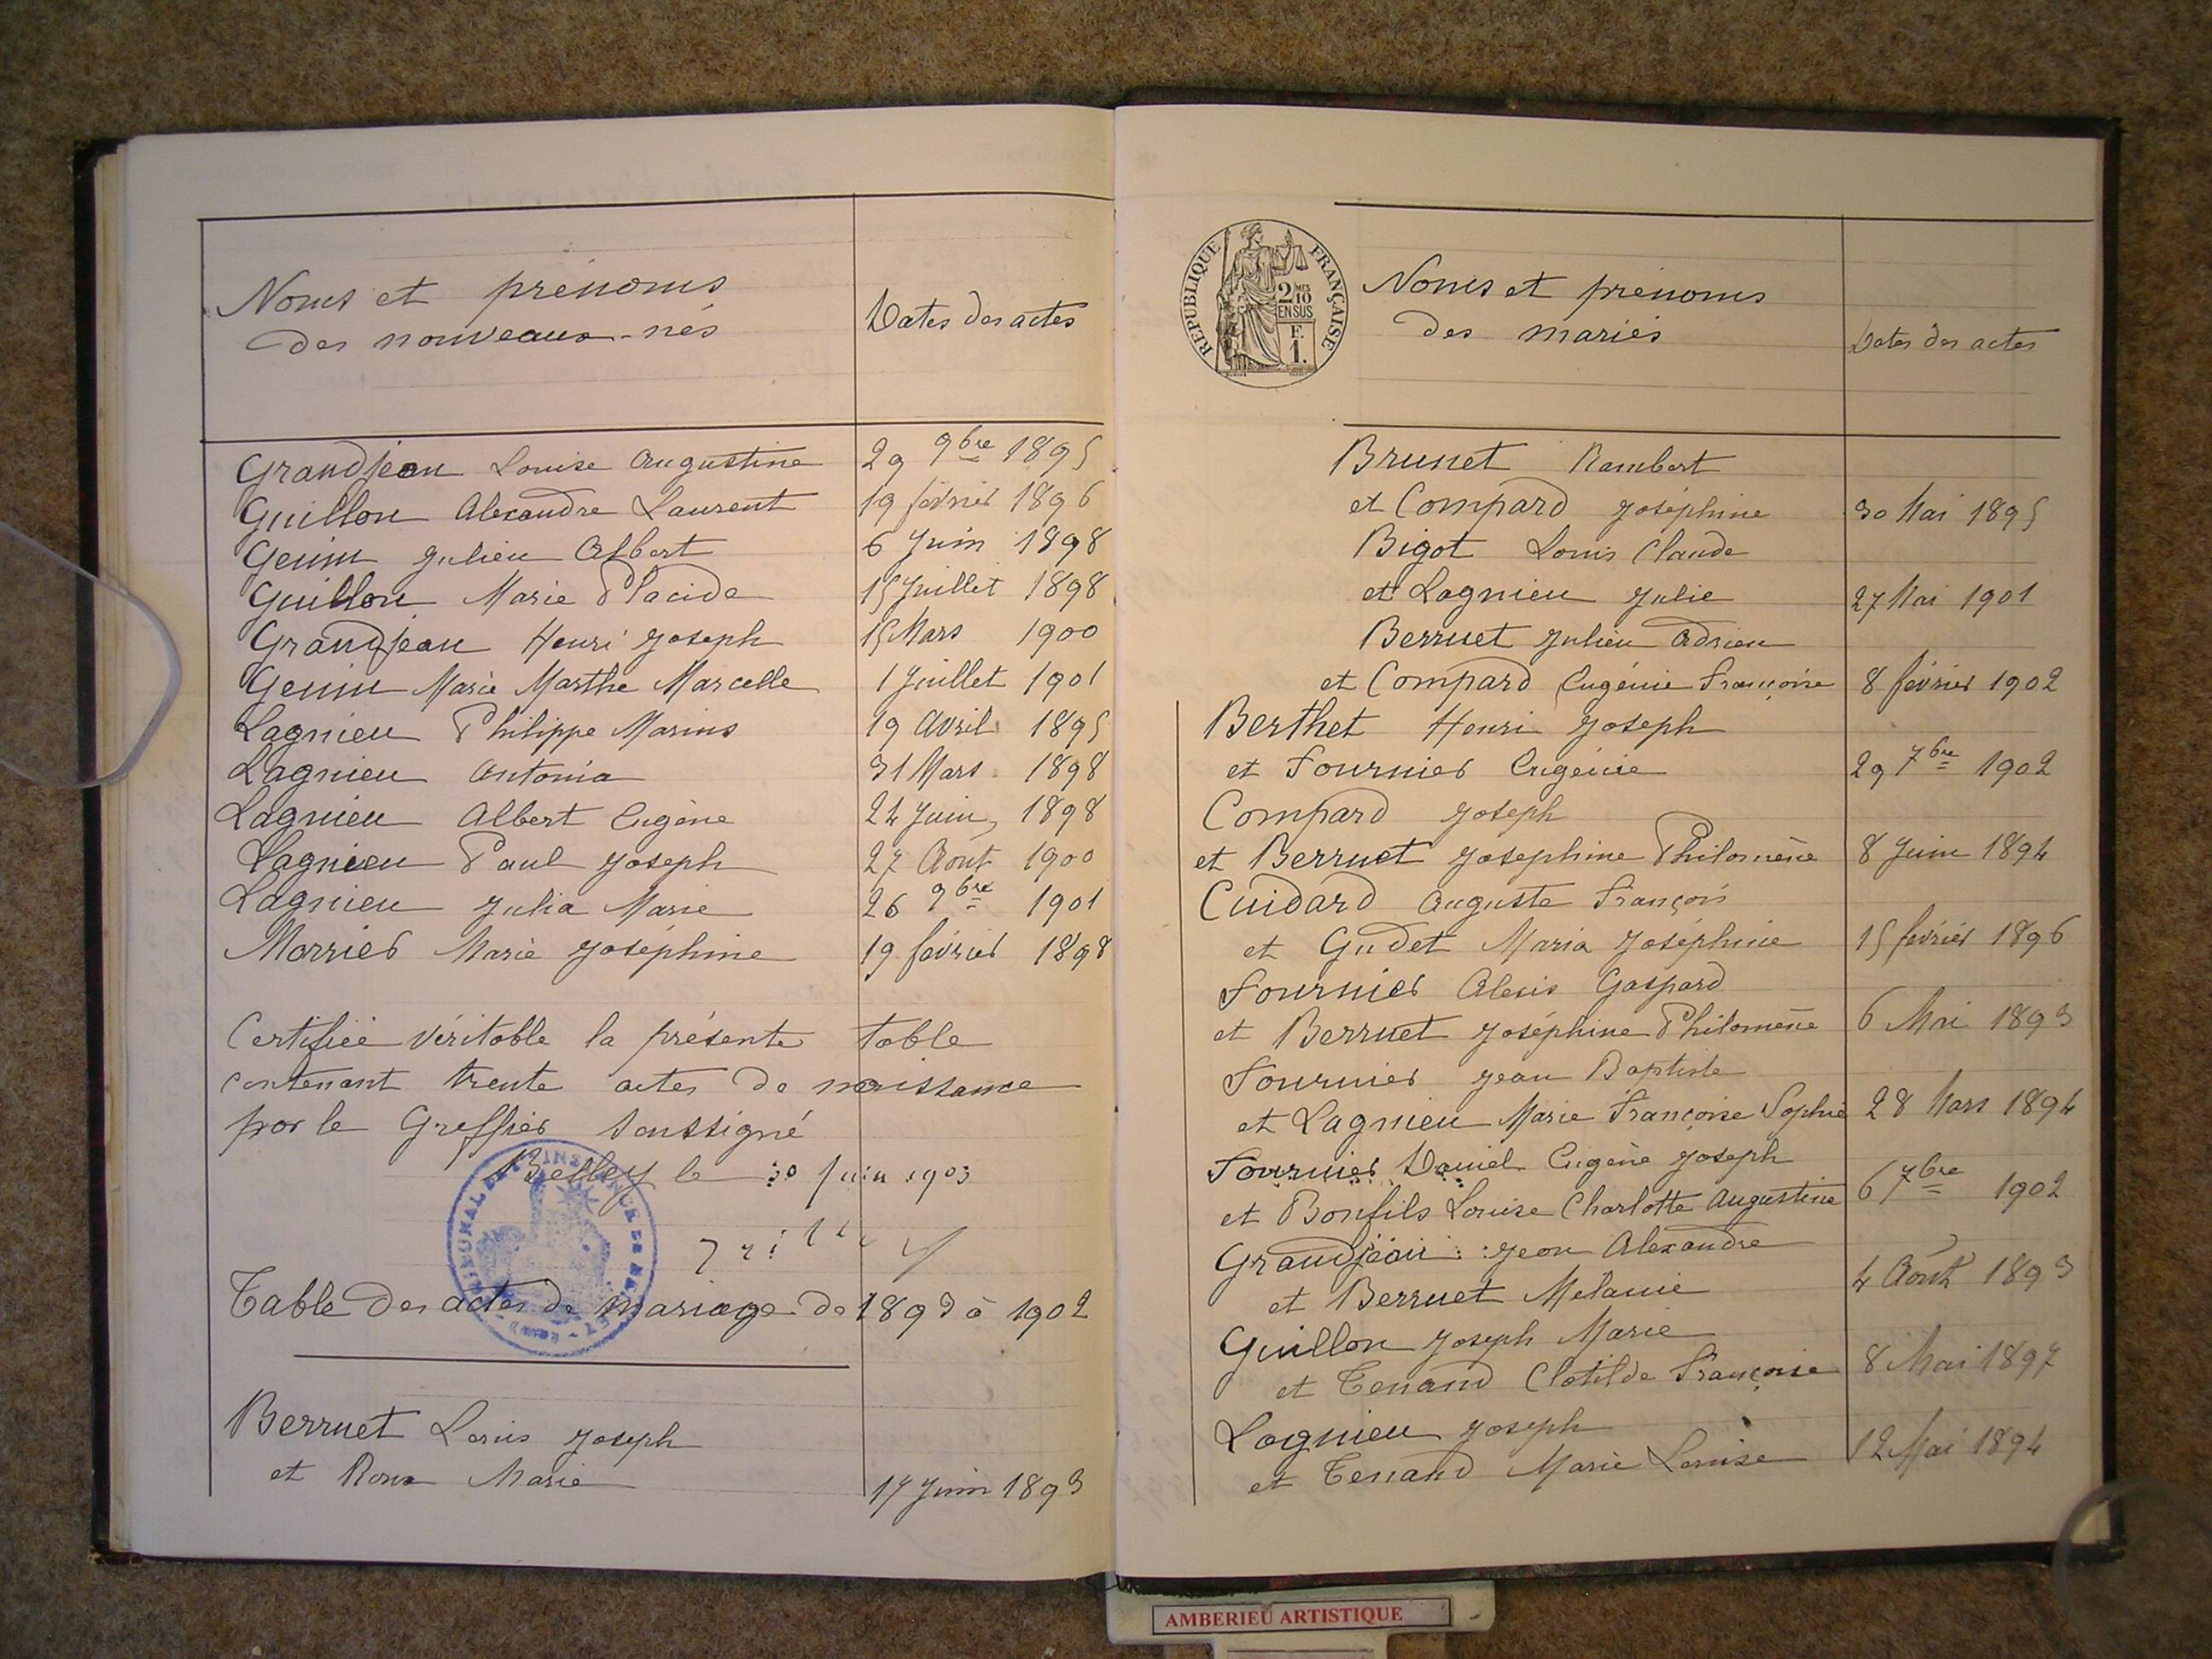 Noms et prénoms
des nouveaux-nés
Dates des actes
Grandjean Louise Augustine 29 9bre 1895
Guillon Alexandre Laurent 19 février 1896
Genin Julien Albert 6 Juin 1898
Guillon Marie Placide 15 Juillet 1898
Grandjean Henri Joseph 15 Mars 1900
Genin Marie Marthe Marcelle 1 Juillet 1901
Lagnieu Philippe Marius 19 Avril 1895
Lagnieu Antonia 31 Mars 1898
Lagnieu Albert Eugène 24 Juin 1898
Lagnieu Paul Joseph 27 Aout 1900
Lagnieu Julia Marie 26 9bre 1901
Morrier Marie Joséphine 19 février 1898
Certifiée véritable la présente table
contenant trente actes de naissance
par le Greffier soussigné
Belley le 30 Juin 1903
Table des actes de mariage de 1893 à 1902
Berruet Louis Joseph
et Roux Marie 17 Juin 1893
RÉPUBLIQUE FRANÇAISE
2 MES
10
EN SUS
F.
1.
Noms et prénoms
des mariés
Dates des actes
Brunet Rambert
et Compard Joséphine 30 Mai 1895
Bigot Louis Claude
et Lagnieu Julie 27 Mai 1901
Berruet Julien Adrien
et Compard Eugénie Françoise 8 février 1902
Berthet Henri Joseph
et Fournier Eugénie 29 7bre 1902
Compard Joseph
et Berruet Josephine Philomène 8 Juin 1894
Cuidard Auguste François
et Gudet Maria Joséphine 15 février 1896
Fournier Alexis Gaspard
et Berruet Joséphine Philomène 6 Mai 1893
Fournier Jean Baptiste
et Lagnieu Marie Françoise Sophie 28 Mars 1894
Fournier Daniel Eugène Joseph
et Bonfils Louise Charlotte Augustine 6 7bre 1902
Grandjean Jean Alexandre
et Berruet Mélanie 4 Août 1893
Guillon Joseph Marie
et Tenand Clotilde Françoise 8 Mai 1897
Lagnieu Joseph
et Tenand Marie Louise 12 Mai 1894
AMBERIEU ARTISTIQUE